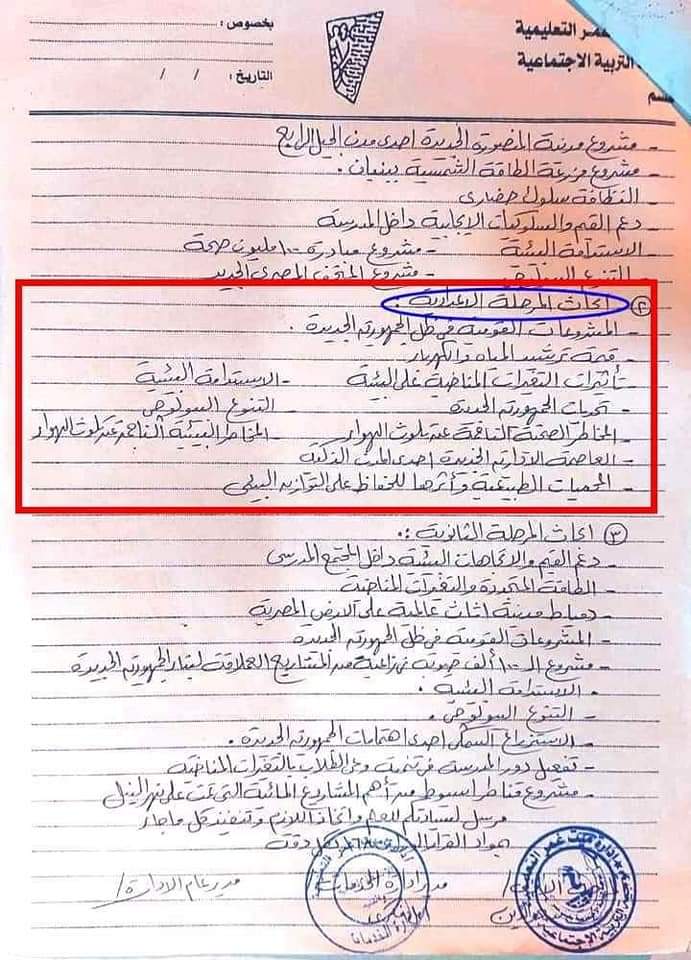 عمر التعليمية
التربية الاجتماعية
قسم
بخصوص :
التاريخ : / /
- مشروع مدينة المنصورة الجديدة احدى مدن الجيل الرابع
- مشروع مزرعة الطاقة الشمسية ببنبان .
- النظافة سلوك حضارى
- دعم القيم والسلوكيات الإيجابية داخل المدرسة
- الاستدامة البيئية - مشروع مبادرة ١٠٠ مليون صحة
- التنوع - مشروع المتحف المصرى الجديد
٢ ابحاث المرحلة الاعدادية .
- المشروعات القومية فى ظل الجمهورية الجديدة .
- قيمة ترشيد المياه والكهرباء
- تأثيرات التغيرات المناخية على البيئة - الاستدامة البيئية
- تحديات الجمهورية الجديدة - التنوع البيولوجى
- المخاطر الصحية الناجمة عن تلوث الهواء - المخاطر البيئية الناجمة عن تلوث الهواء
- العاصمة الادارية الجديدة احدى المدن الذكية
- المحميات الطبيعية وأثرها للحفاظ على التوازن البيئى
٣ ابحاث المرحلة الثانوية :.
- دعم القيم والاتجاهات البيئية داخل المجتمع المدرسى
- الطاقة المتجددة والتغيرات المناخية
- دمياط مدينة اثاث عالمية على الارض المصرية
- المشروعات القومية فى ظل الجمهورية الجديدة
- مشروع الـ ١٠٠ ألف صوبة زراعية من المشاريع العملاقة لبناء الجمهورية الجديدة
- الاستدامة البيئية .
- التنوع البيولوجى .
- الاستزراع السمكى احدى اهتمامات الجمهورية الجديدة .
- تفعيل دور المدرسة فى تنمية وعى الطلاب بالتغيرات المناخية
- مشروع قناطر اسيوط من أهم المشاريع المائية التى تمت على نهر النيل
مرسل لسيادتكم للعلم واتخاذ اللازم وتنفيذ كل ما جاء
بمواد القرار بكل دقة
مدير ادارة الخدمات / مدير عام الادارة /